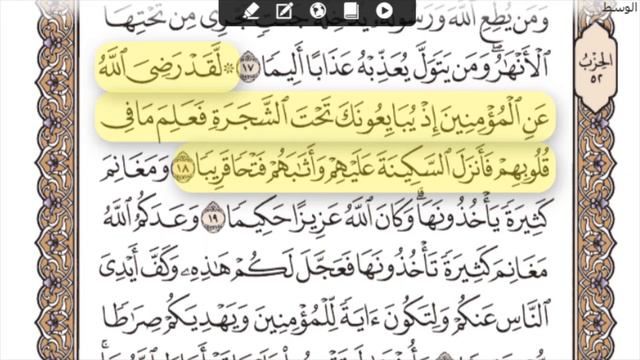 الوسط
وَمَن يُطِعِ ٱللَّهَ وَرَسُولَهُۥ
ٱلْأَنْهَٰرُ ۖ وَمَن يَتَوَلَّ يُعَذِّبْهُ عَذَابًا أَلِيمًا ١٧ ۞ لَّقَدْ رَضِىَ ٱللَّهُ
عَنِ ٱلْمُؤْمِنِينَ إِذْ يُبَايِعُونَكَ تَحْتَ ٱلشَّجَرَةِ فَعَلِمَ مَا فِى
قُلُوبِهِمْ فَأَنزَلَ ٱلسَّكِينَةَ عَلَيْهِمْ وَأَثَٰبَهُمْ فَتْحًا قَرِيبًا ١٨ وَمَغَانِمَ
كَثِيرَةً يَأْخُذُونَهَا ۗ وَكَانَ ٱللَّهُ عَزِيزًا حَكِيمًا ١٩ وَعَدَكُمُ ٱللَّهُ
مَغَانِمَ كَثِيرَةً تَأْخُذُونَهَا فَعَجَّلَ لَكُمْ هَٰذِهِۦ وَكَفَّ أَيْدِىَ
ٱلنَّاسِ عَنكُمْ وَلِتَكُونَ ءَايَةً لِّلْمُؤْمِنِينَ وَيَهْدِيَكُمْ صِرَٰطًا
ٱلْحِزْبُ
٥٢